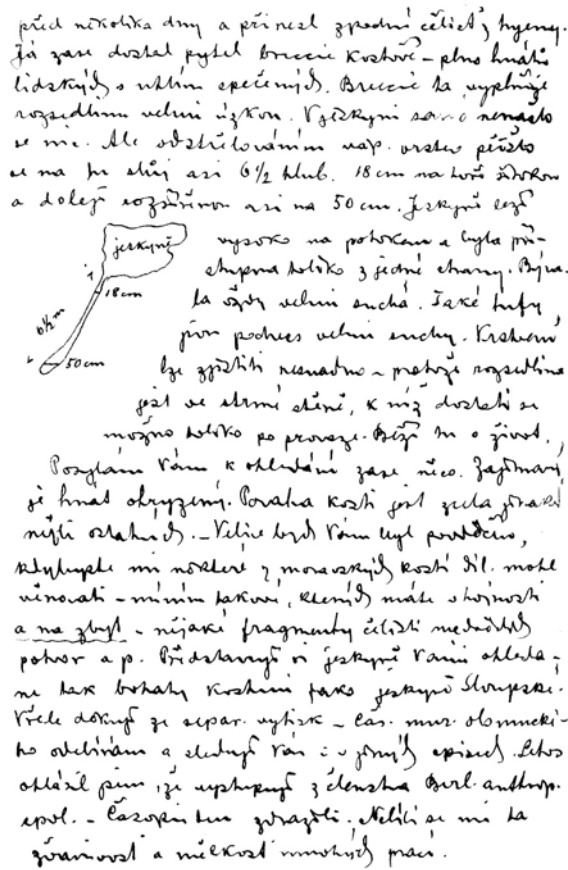 před několika dny a přinesl zpodní čelist z hyeny.
Já zase dostal pytel breccie kostové – plno hnátů
lidských s uhlím spečených. Breccie ta vyplňuje
rozsedlinu velmi úzkou. V jeskyni samo nenašlo
se nic. Ale odstřelováním váp. vrstev přišlo
se na tu sluj asi 6½ hlub. 18 cm na hoře širokou
a doleji rozšířenou asi na 50 cm. Jeskyně leží
jeskyně
18 cm
6½ m
50 cm
vysoko na potokem a byla pří-
stupna toliko z jedné strany. Býva-
la vždy velmi suchá. Také tufy
jsou podnes velmi suchy. Vrstvení
lze zjistiti nesnadno – protože rozsedlina
jest ve strmé stěně, k níž dostati se
možno toliko po provaze. Běží tu o život.
Posýlám Vám k ohledání zase něco. Zajímavý
je hnát ohryzený. Povaha kostí jest zcela
nežli ostatních. – Velice bych Vám byl povděčen,
kdybyste mi některé z moravských kostí dil. mohl
věnovati – míním takové, kterých máte v hojnosti
a na zbyt – nějaké fragmenty čelistí medvědích
potvor a p. Představuji si jeskyně Vámi ohleda-
né tak bohaty kostmi jako jeskyně Sloupské.
Vřele děkuji za separ. výtisk – Čas. mus. olomucké-
ho odebírám a sleduji Vás i v jiných spisech. Letos
ohlásil jsem, že vystupuji z členstva Berl. anthrop.
spol. – Časopis ten zdrazili. Nelíbí se mi ta
a mělkost mnohých prací.